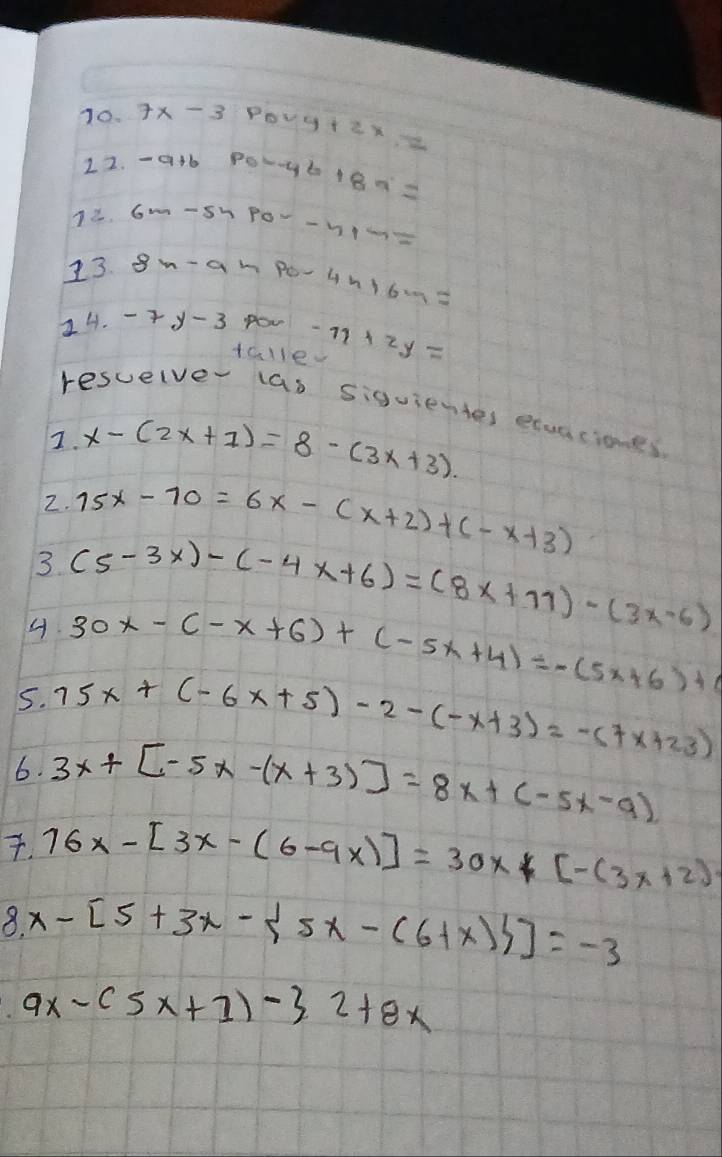 10. 7x - 3 por 4 + 2x =
11. -a+b por -4b + 8a =
12. 6m - 5n por -n+m =
13. 8n - 9m por 4n + 6m =
14. -7y - 3 por -11 + 2y =
taller
resuelver las siguientes ecuaciones.
1. x - (2x + 1) = 8 - (3x + 3).
2. 15x - 10 = 6x - (x + 2) + (-x + 3)
3. (5 - 3x) - (-4x + 6) = (8x + 11) - (3x - 6)
4. 30x - (-x + 6) + (-5x + 4) = -(5x + 6) + (
5. 15x + (-6x + 5) - 2 - (-x + 3) = -(7x + 23)
6. 3x + [-5x - (x + 3)] = 8x + (-5x - 9)
7. 16x - [3x - (6 - 9x)] = 30x + [-(3x + 2)
8. x - [5 + 3x - {5x - (6 + x)}] = -3
. 9x - (5x + 1) - { 2 + 8x